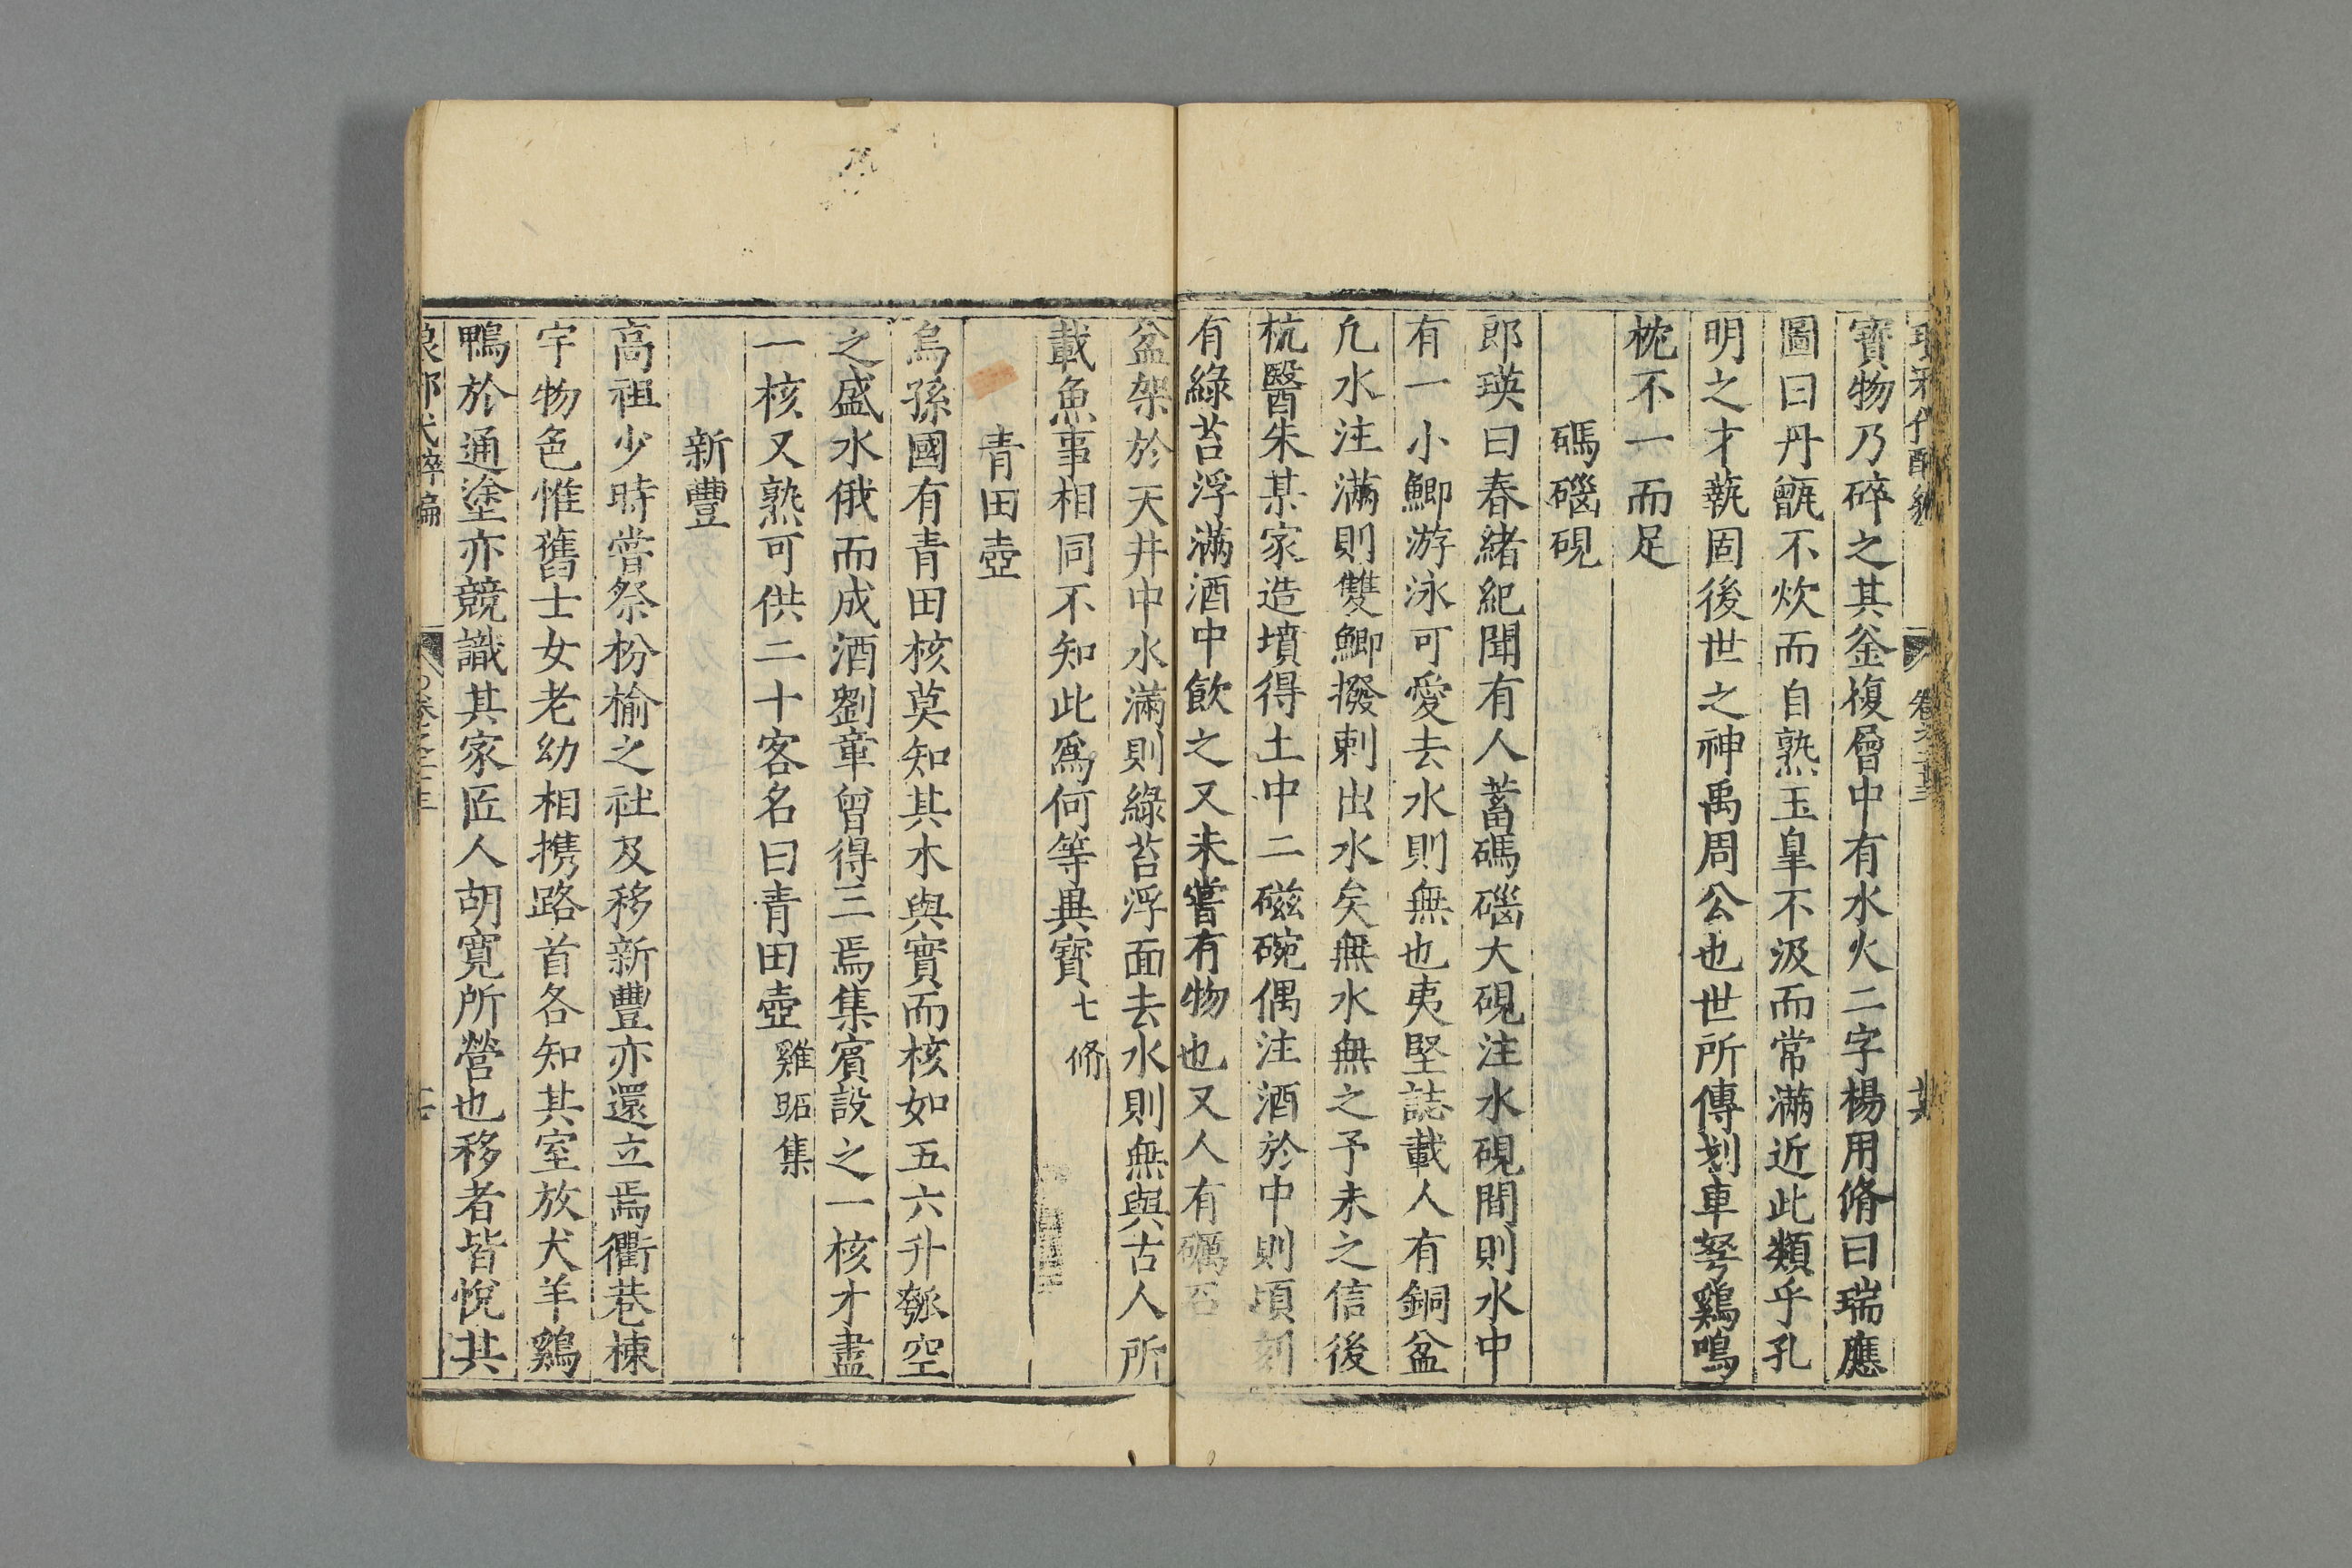 寶物乃碎之其釜複層中有水火二字楊用脩曰瑞應
圖曰丹甑不炊而自熟玉皐不汲而常滿近此類乎孔
明之才蓺固後世之神禹周公也世所傳刬車弩鷄鳴
枕不一而足
碼碯硯
郎瑛曰春緒紀聞有人蓄碼碯大硯注水硯間則水中
有一小鯽游泳可愛去水則無也夷堅誌載人有銅盆
凢水注滿則雙鯽撥剌出水矣無水無之予未之信後
杭醫朱某家造墳得土中二磁碗偶注酒於中則頃刻
有綠苔浮滿酒中飲之又未嘗有物也又人有礪石
盆架於天井中水滿則綠苔浮面去水則無與古人所
載魚事相同不知此爲何等異寶七脩
青田壺
烏孫國有青田核莫知其木與實而核如五六升瓠空
之盛水俄而成酒劉章曾得三焉集賓設之一核才盡
一核又熟可供二十客名曰青田壺雞跖集
新豐
高祖少時嘗祭枌榆之社及移新豐亦還立焉衢巷棟
宇物色惟舊士女老幼相携路首各知其室放犬羊鷄
鴨於通塗亦競識其家匠人胡寬所營也移者皆悅其